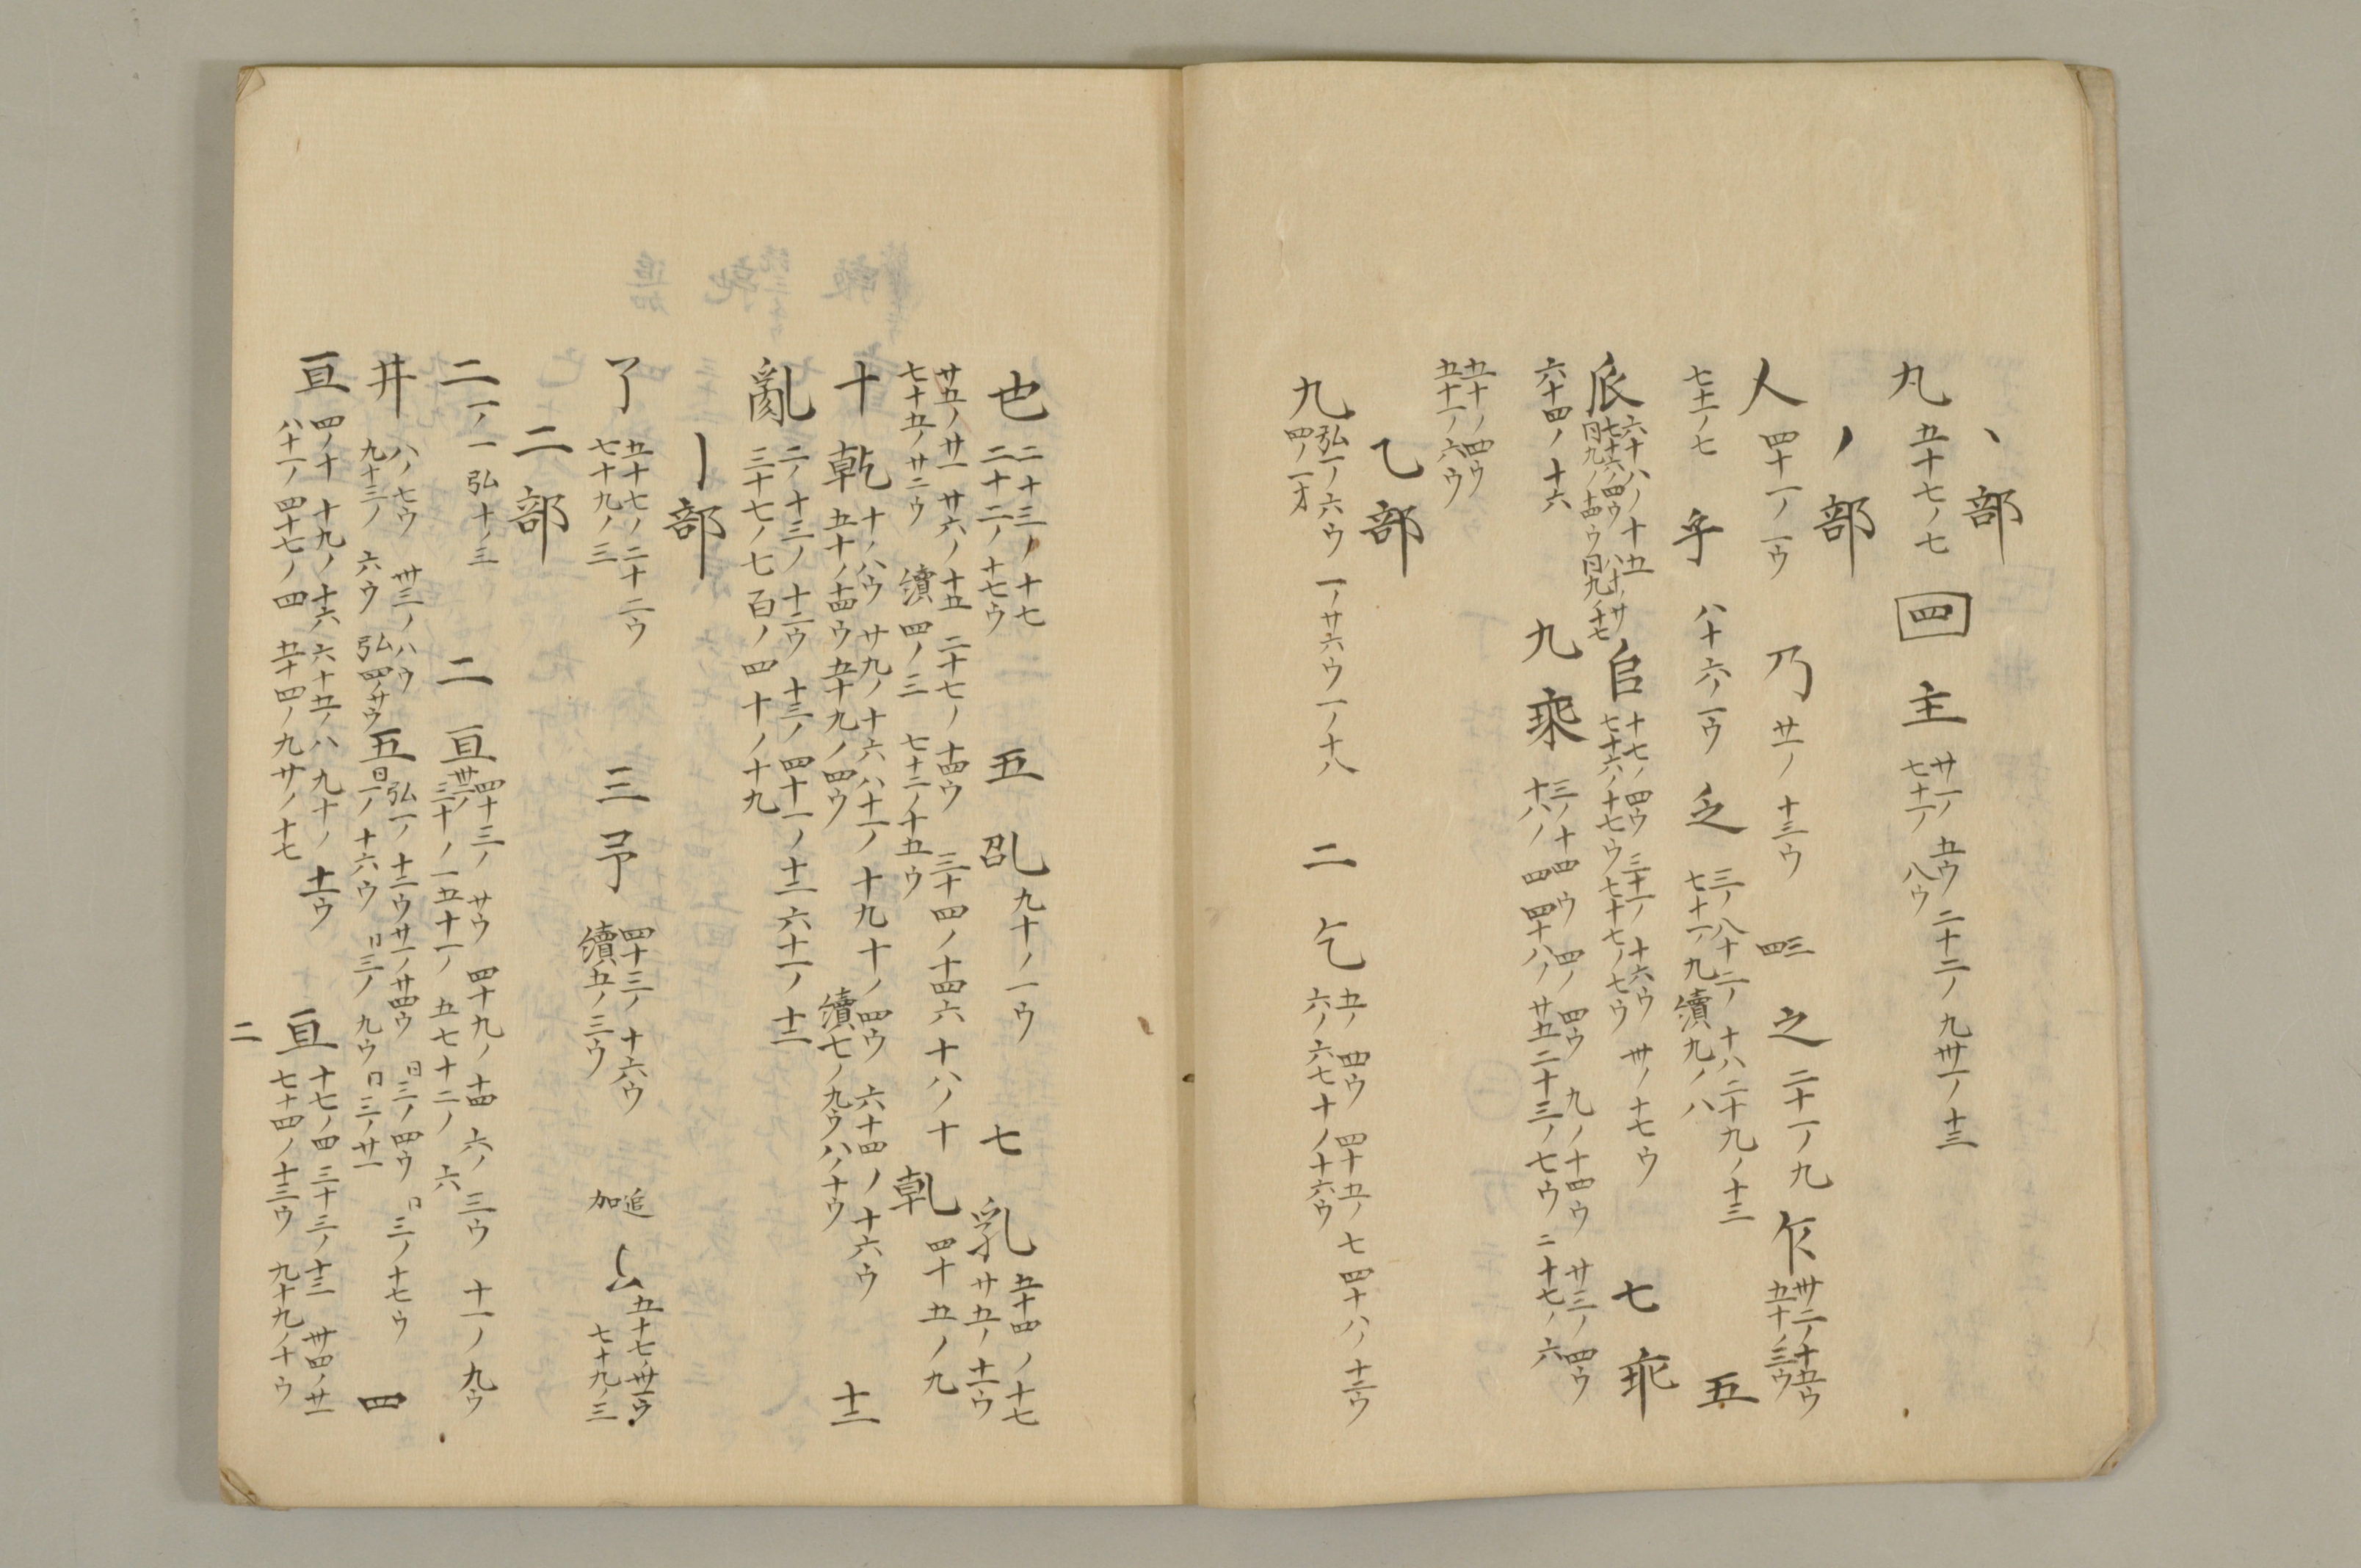 丶部
九 五十七ノ七 四 主 廿一ノ五ウ 二十二ノ九 卅一ノ十三
七十一ノ八ウ
ノ部
人 四十一ノ一ウ 乃 廿一ノ十三ウ 三四 之 二十一ノ九 乍 卅二ノ十五ウ
五十ノ三ウ
七十一ノ七 乎 八十六ノ一ウ 乏 三ノ八 十二ノ十八 二十九ノ十三 五
七十一ノ九 續九ノ八
𠂢 六十八ノ十五 八十一ノ廿 𠂤 十七ノ四ウ 三十一ノ十六ウ 卅ノ十七ウ 七 乖
七十六ノ四ウ 同九ノ十四ウ 同九ノ十七 七十六ノ十七ウ 七十七ノ七ウ
六十四ノ十六 九 乘 三ノ十四ウ 四ノ四ウ 九ノ十四ウ 廿三ノ四ウ
十八ノ四 四十八ノ廿五 二十三ノ七ウ 二十七ノ六
五十ノ四ウ
五十一ノ六ウ
乙部
九 弘一ノ六ウ 一ノ廿六ウ 一ノ十八 二 乞 五ノ四ウ 四十五ノ七 四十八ノ十三ウ
四ノ一オ 六ノ六 七十ノ十六ウ
也 二十三ノ十七 五 乩 九十ノ一ウ 七 乳 五十四ノ十七
二十二ノ十七ウ 廿五ノ十一ウ
廿五ノ廿一 廿六ノ十五 二十七ノ十四ウ 三十四ノ十四 六十八ノ十 乹 四十五ノ九
七十五ノ廿二ウ 續四ノ三 七十二ノ十五ウ
十 乾 十ノ八ウ 廿九ノ十六 八十一ノ十九 十ノ四ウ 六十四ノ十六ウ 十二
五十ノ十四ウ 五十九ノ四ウ 續七ノ九ウ 八ノ十ウ
亂 二ノ十三ノ十二ウ 十三ノ四十一ノ十二 六十一ノ十二
三十七ノ七 百ノ四 十ノ十九
亅部
了 五十七ノ二十二ウ 三 予 四十三ノ十六ウ 追加 五十七ノ卅一ウ
七十九ノ三 續五ノ三ウ 七十九ノ三
二部
二 一ノ一 弘十ノ三 二 亘 四十三ノ廿ウ 四十九ノ十四 六ノ三ウ 十一ノ九ウ
三十ノ一 五十一ノ五 七十二ノ六
井 八ノ七ウ 卅三ノ八ウ 五 弘一ノ十二ウ 廿一ノ廿四ウ 日三ノ四ウ 日三ノ十七ウ 四
九十三ノ六ウ 弘四ノ廿ウ 日一ノ十六ウ 日三ノ九ウ 日三ノ廿一
亘 四ノ十 十九ノ十六 六十五ノ八 九十ノ十一ウ 亘 十七ノ四 三十三ノ十三 卅四ノ廿一
八十一ノ四十七ノ四 五十四ノ九 廿ノ十七 七十四ノ十三ウ 九十九ノ十ウ
二